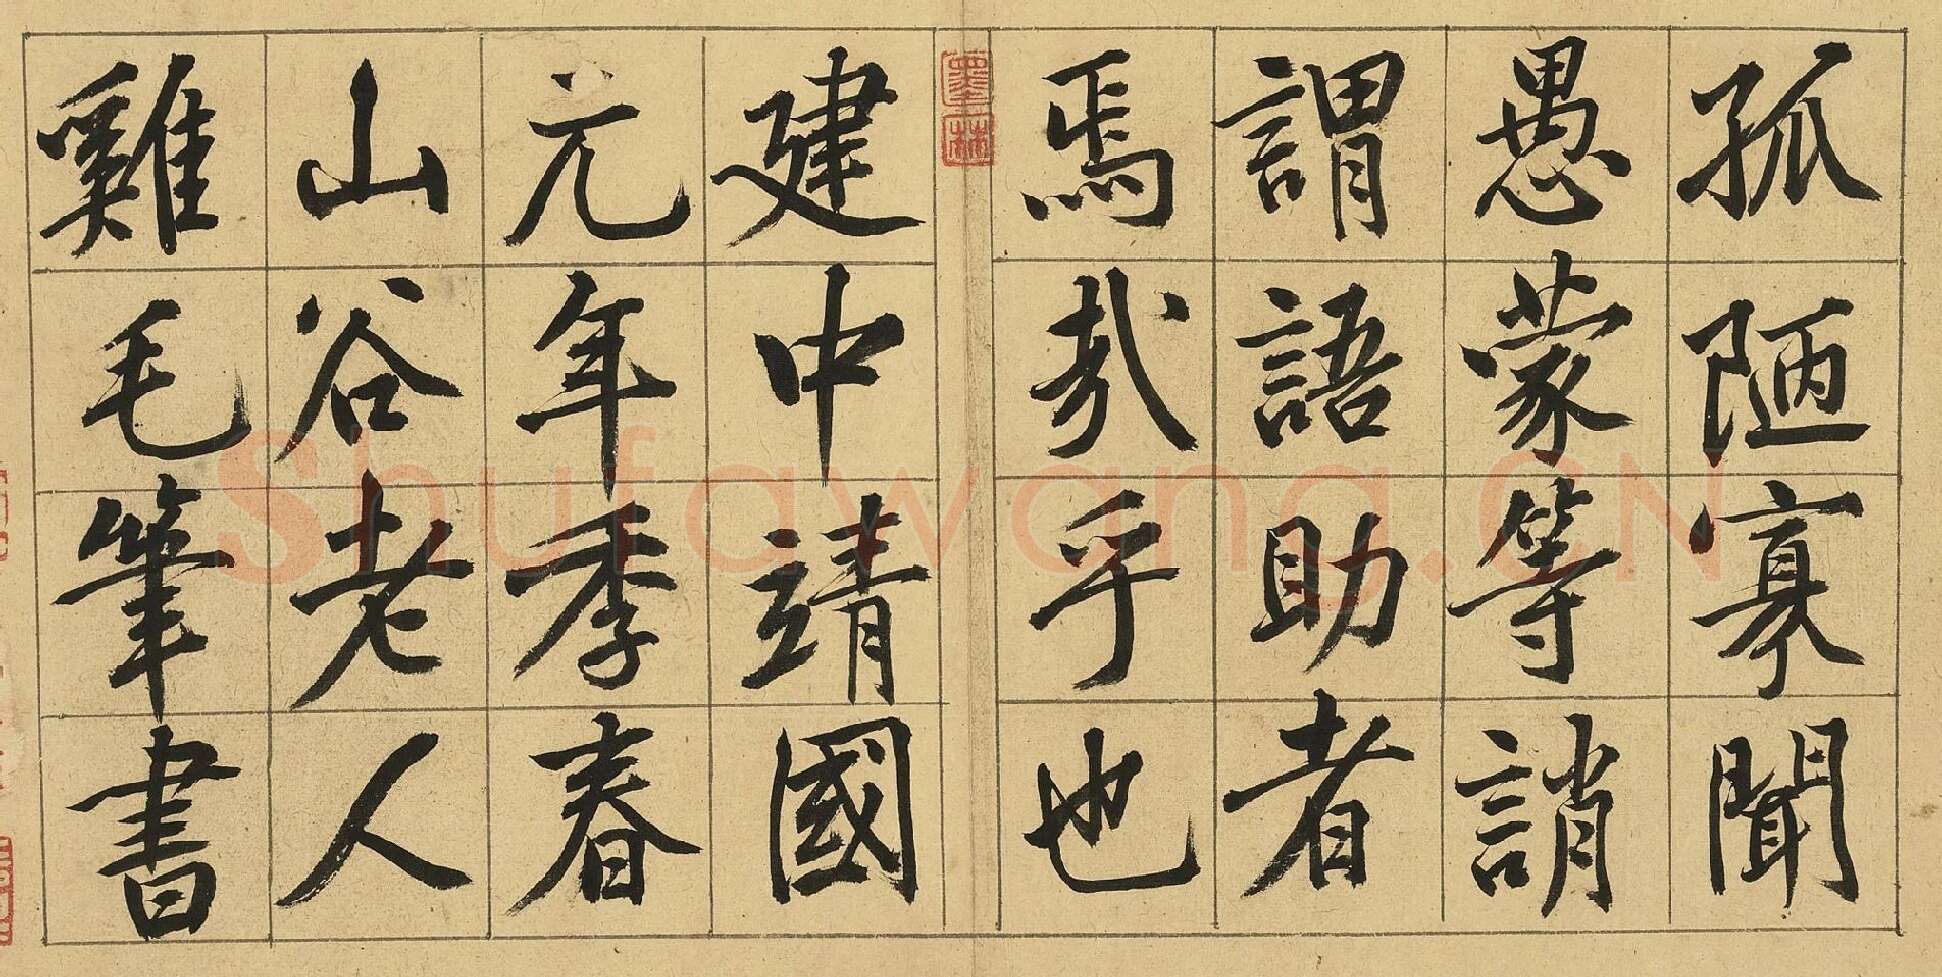 孤陋寡聞
愚蒙等誚
謂語助者
焉哉乎也
墨林
建中靖國
元年季春
山谷老人
雞毛筆書
Shufawang.CN